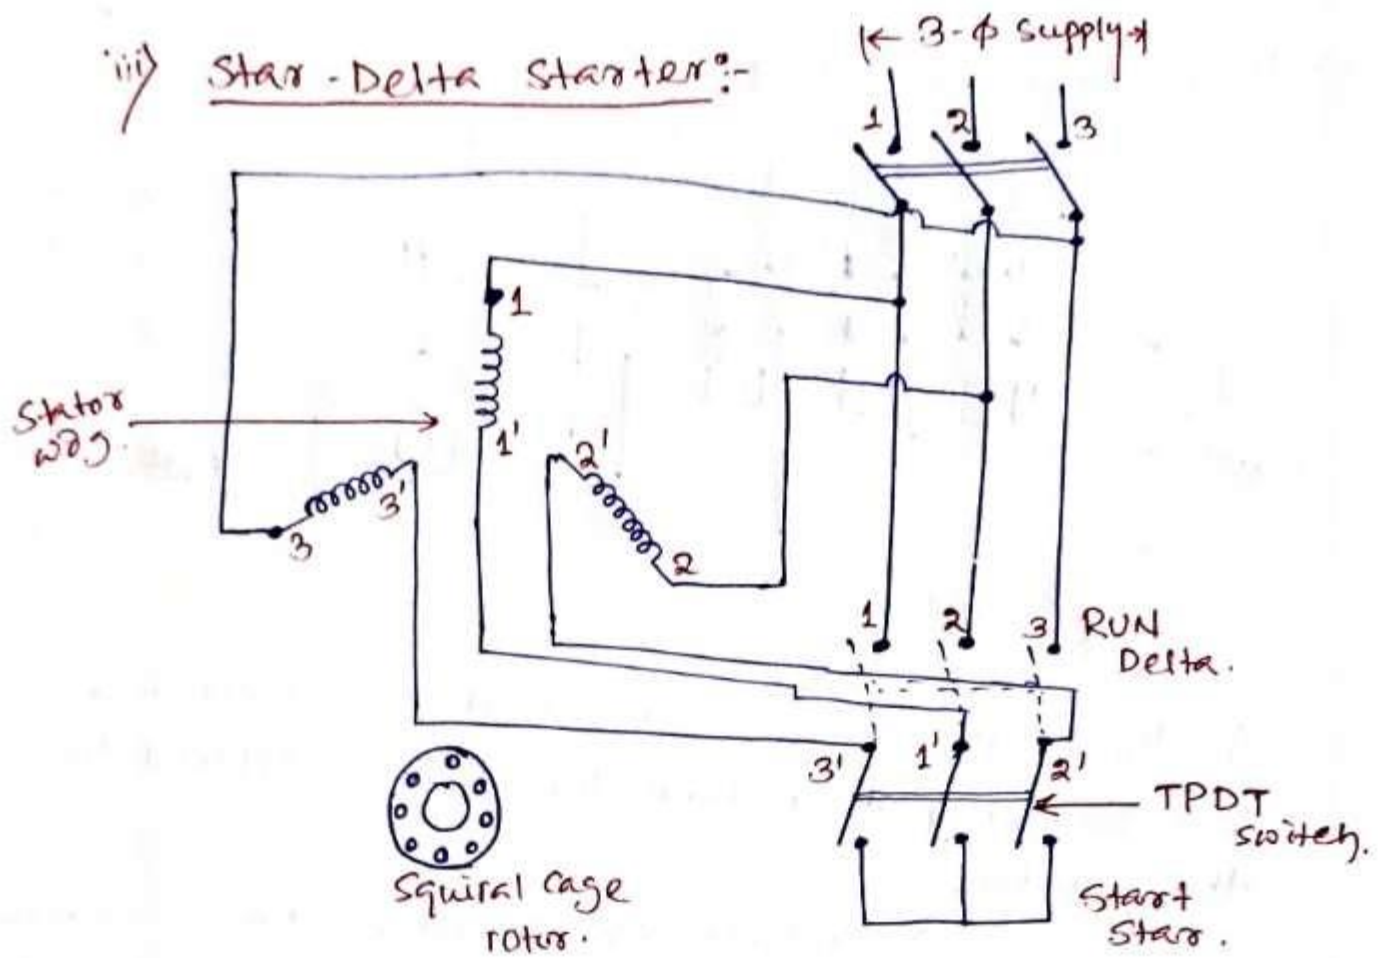 iii) Star-Delta Starter:-
3-ф supply
1 2 3
1
Stator
wdg.
1'
2'
3'
3
2
1 2 3 RUN
Delta.
3' 1' 2'
TPDT
switch.
Squiral cage
rotor.
Start
Star.